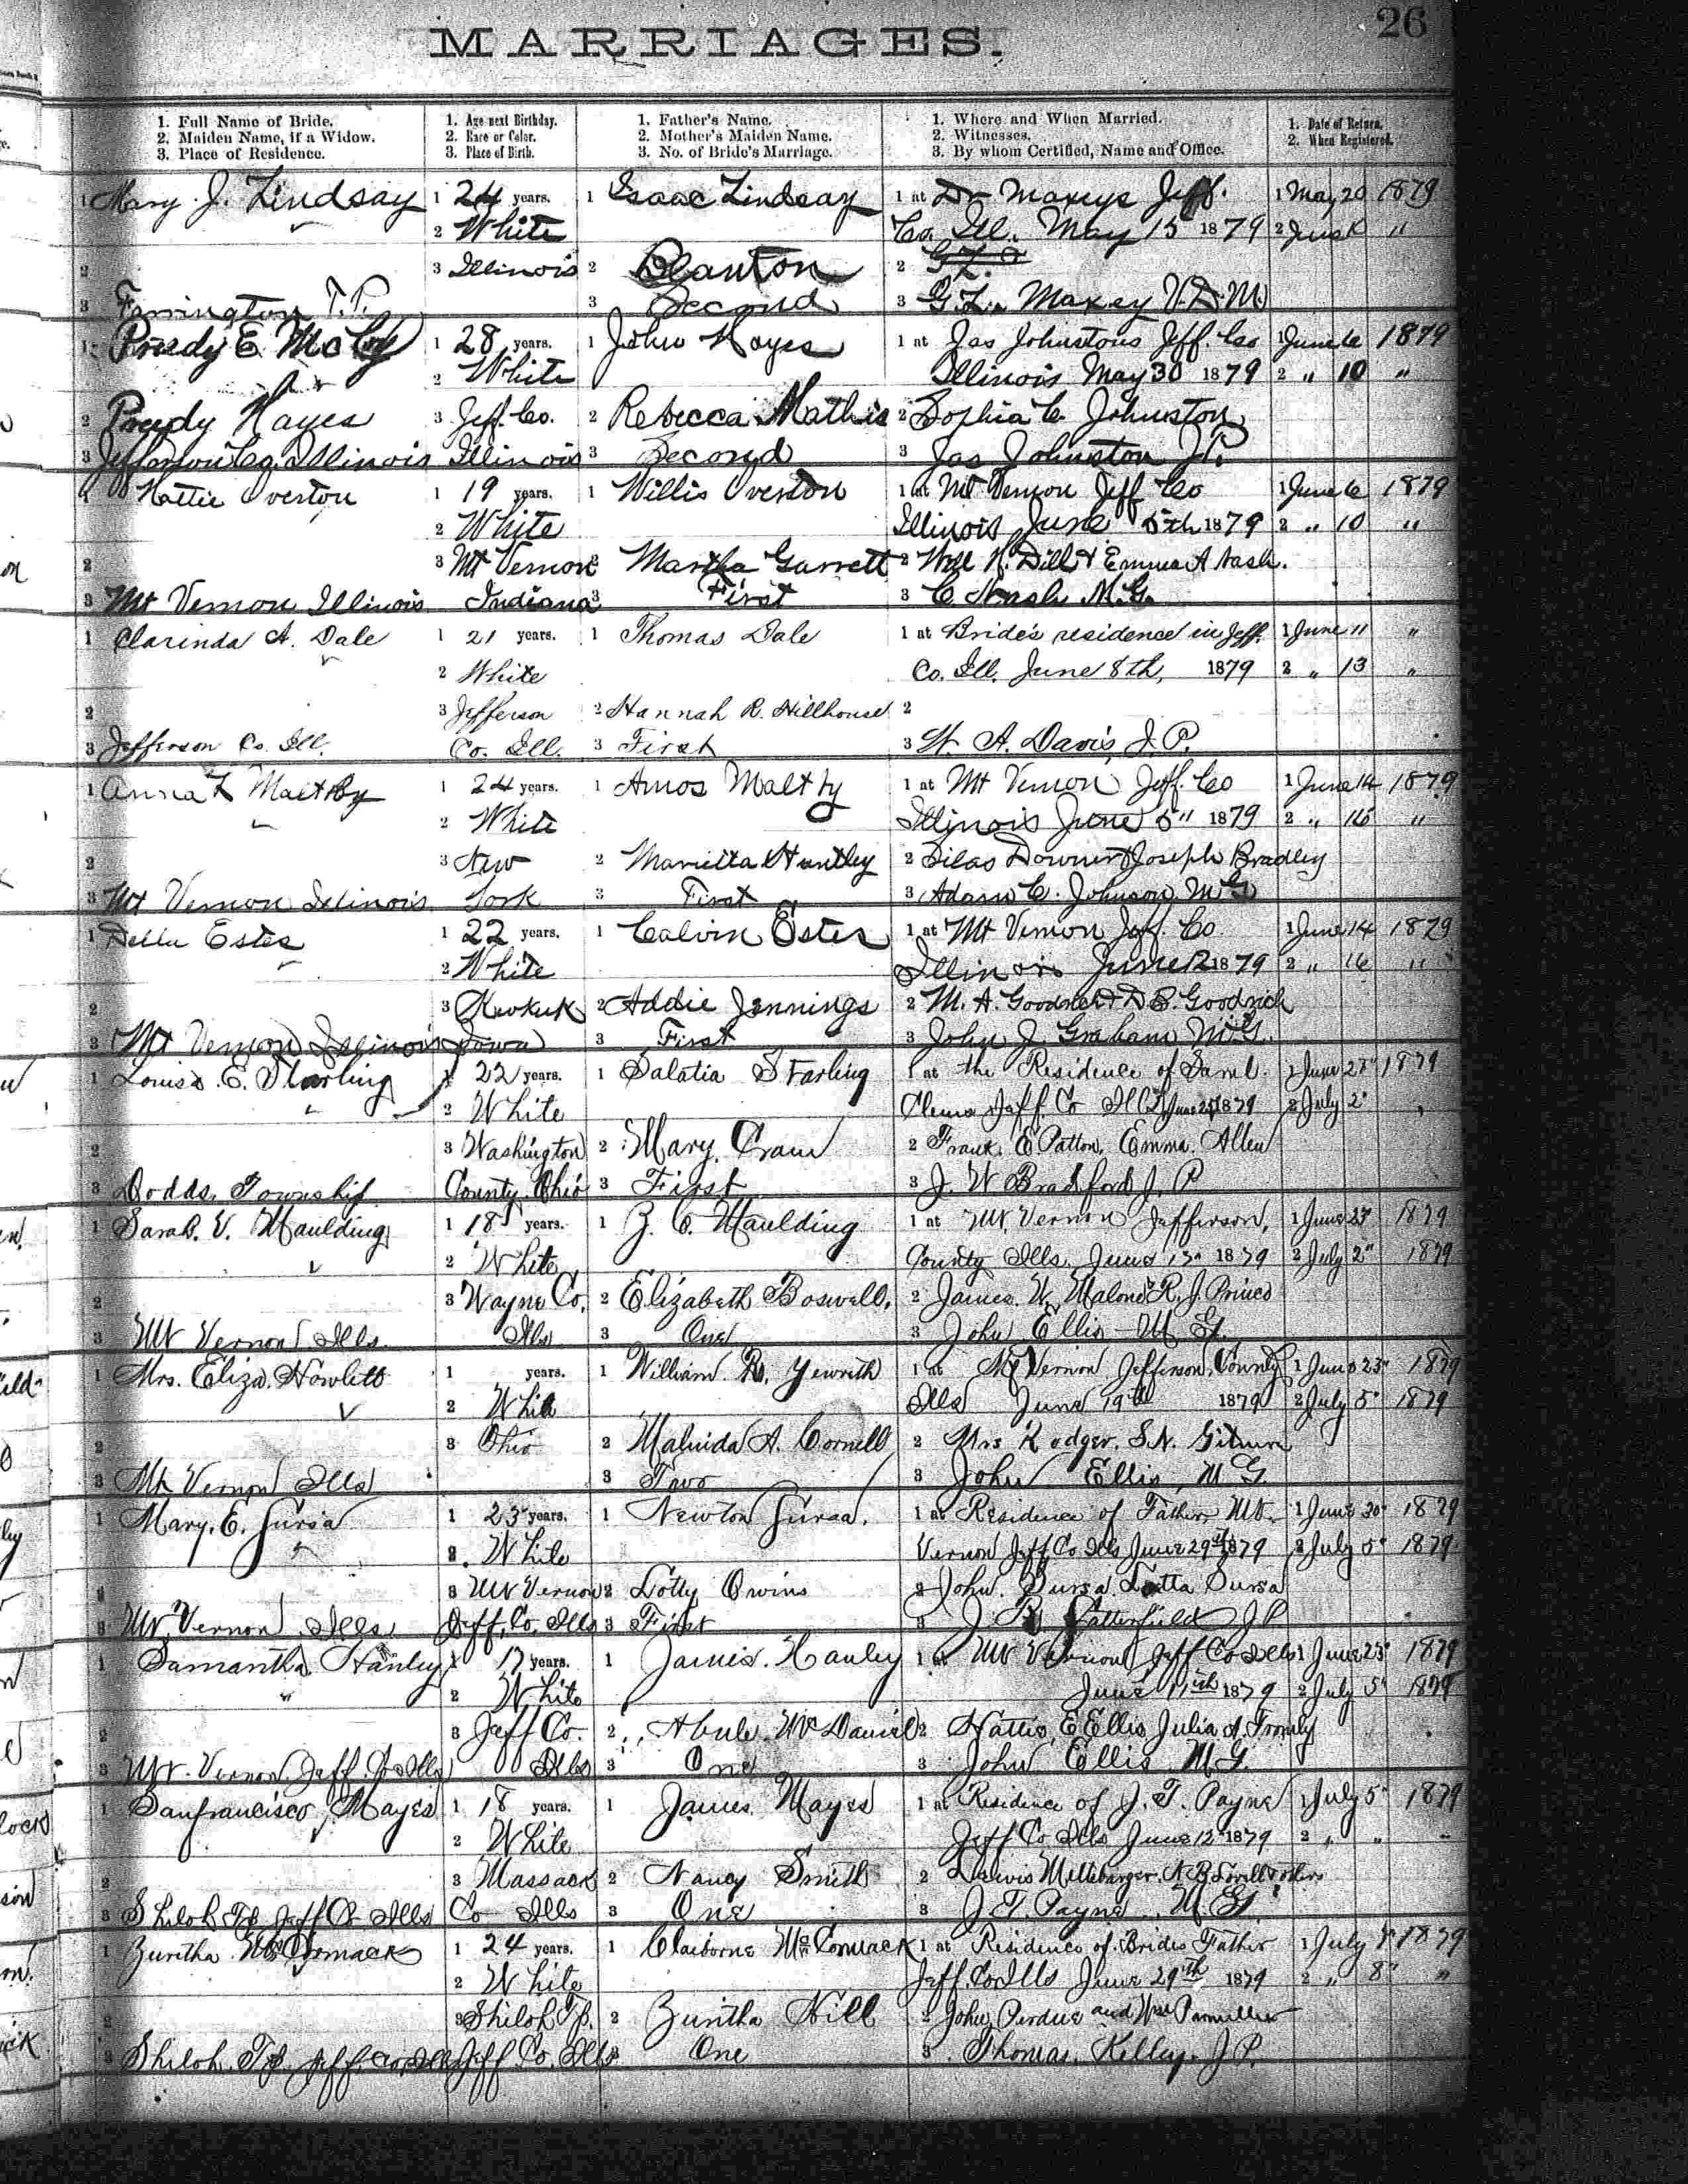 26
MARRIAGES.
1. Full Name of Bride. 1. Age next Birthday. 1. Father's Name. 1. Where and When Married. 1. Date of Return.
2. Maiden Name, if a Widow. 2. Race or Color. 2. Mother's Maiden Name. 2. Witnesses. 2. When Registered.
3. Place of Residence. 3. Place of Birth. 3. No. of Bride's Marriage. 3. By whom Certified, Name and Office.
1 Mary J. Lindsay 1 24 years. 1 Isaac Lindsay 1 at Dr Maxeys Jeff. 1 May 20 1879
2 White Co. Ill. May 15 1879 2 June "
2 3 Illinois 2 Blanton 2
3 Farrington T.P. 3 Second 3 G.L. Maxey V.D.M
1 Prudy E McCoy 1 28 years. 1 John Hayes 1 at Jas Johnstons Jeff. Co 1 June 6 1879
2 White Illinois May 30 1879 2 " 10 "
2 Prudy Hayes 3 Jeff. Co. 2 Rebecca Mathis 2 Sophia C. Johnston
3 Jefferson Co. Illinois Illinois 3 Second 3 Jas Johnston J.P.
1 Hattie Overton 1 19 years. 1 Willis Overton 1 at Mt Vernon Jeff Co 1 June 6 1879
2 White Illinois June 5th 1879 2 " 10 "
2 3 Mt Vernon 2 Martha Garrett 2 Will N. Dill & Emma A Nash.
3 Mt Vernon Illinois Indiana 3 First 3 C. Nash M.G.
1 Clarinda A. Dale 1 21 years. 1 Thomas Dale 1 at Bride's residence in Jeff. 1 June 11 "
2 White Co. Ill. June 8th, 1879 2 " 13 "
2 3 Jefferson 2 Hannah R. Hillhouse 2
3 Jefferson Co. Ill. Co. Ill. 3 First 3 A. Davis, J.P.
1 Anna L Maltby 1 24 years. 1 Amos Maltby 1 at Mt Vernon Jeff. Co 1 June 14 1879
2 White Illinois June 5" 1879 2 " 16 "
2 3 New 2 Marietta Huntley 2 Silas Downer & Joseph Bradley
3 Mt Vernon Illinois York 3 First 3 Adam C. Johnson M G
1 Della Estes 1 22 years. 1 Calvin Estes 1 at Mt Vernon Jeff. Co 1 June 14 1879
2 White Illinois June 12 1879 2 " 16 "
2 3 Keokuk 2 Addie Jennings 2 M. A. Goodner & D S. Goodrich
3 Mt Vernon Illinois Iowa 3 First 3 John J. Graham M.G.
1 Louisa E. Starling 1 22 years. 1 Salatia Starling 1 at the Residence of Saml. 1 June 1879
2 White Jeff. Co Ills June 1879 2 July 2"
2 3 Washington 2 Mary Crain 2 Frank. E Patton, Emma Allen
3 Dodds, Township County Ohio 3 First 3 J. W Bradford J. P
1 Sarah. V. Maulding 1 18 years. 1 Z. C. Maulding 1 at Mt. Vernon Jefferson, 1 June 1879
2 White County Ills. June 1879 2 July 2" 1879
2 3 Wayne Co, 2 Elizabeth Boswell, 2 James. W. Malone R. J. Prince
3 Mt Vernon Ills. Ills 3 One 3 John Ellis M G.
1 Mrs. Eliza. Howlett 1 years. 1 William. R. 1 at Mt Vernon Jefferson, County 1 June 23" 1879
2 White Ills June 19th 1879 2 July 5" 1879
2 3 Ohio 2 Malinda A. Cornell 2 Mrs Rodger. S.N.
3 Mt Vernon Ills 3 Two 3 John Ellis, M G
1 Mary. E. Gursa 1 23 years. 1 Newton Gursa. 1 at Residence of Father, Mt. 1 June 30" 1879
2 White Vernon Jeff Co Ills June 29th 1879 2 July 5" 1879
2 3 Mt Vernon 2 Lotty Owins 2 John. Lotta
3 Mt Vernon Ills Jeff, Co, Ills 3 First 3 J Satterfield J.P
1 Samantha Hanley 1 17 years. 1 James. Hanley 1 at Mt Vernon Jeff Co Ills 1 June 23" 1879
2 White June 11th 1879 2 July 5" 1879
2 3 Jeff Co. 2 McDaniel 2 Hattie, E Ellis, Julia A.
3 Mt. Vernon Jeff. Co Ills Ills 3 One 3 John Ellis M G.
1 Sanfrancisco, Mayes 1 18 years. 1 James Mayes 1 at Residence of J. T. Payne 1 July 5" 1879
2 White Jeff Co Ills June 12" 1879 2 " " "
2 3 Massack 2 Nancy Smith 2 Lewis N B & others
3 Shiloh Tp Jeff Co Ills Co Ills 3 One 3 J. T. Payne M. G
1 Zuritha McCormack 1 24 years. 1 Claiborne McCormack 1 at Residence of Brides Father 1 July 1879
2 White Jeff. Co Ills June 29th 1879 2 " 8" "
2 3 Shiloh Tp. 2 Zuritha Hill 2 John, Perdue and Wm
3 Shiloh. Tp Jeff. Co Ills Jeff Co. Ills 3 One 3 Thomas, Kelley. J.P.